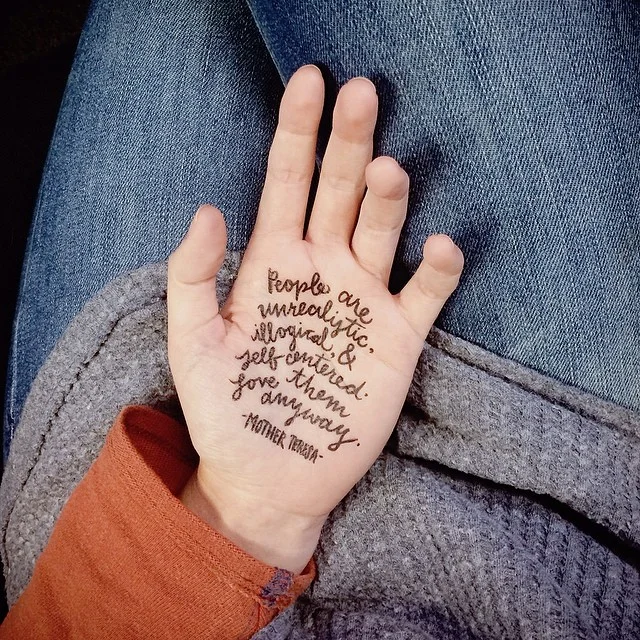 People are
unrealistic,
illogical, &
self-centered.
love them
anyway.
-MOTHER TERESA-